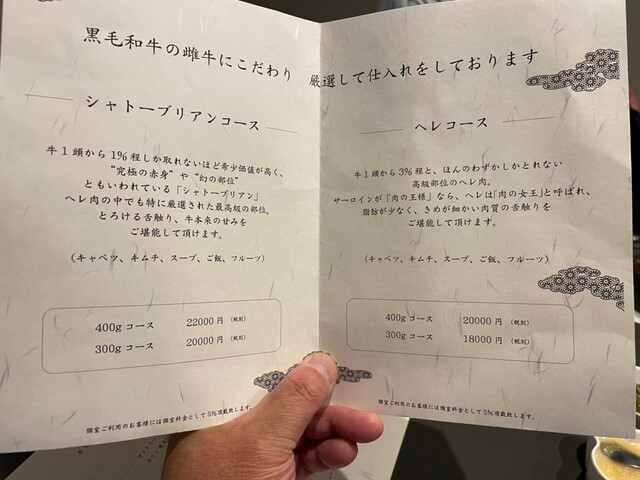 黒毛和牛の雌牛にこだわり 厳選して仕入れをしております
シャトーブリアンコース
牛1頭から1%程しか取れないほど希少価値が高く、
“究極の赤身”や“幻の部位”
ともいわれている「シャトーブリアン」
ヘレ肉の中でも特に厳選された最高級の部位。
とろける舌触り、牛本来の甘みを
ご堪能して頂けます。
(キャベツ、キムチ、スープ、ご飯、フルーツ)
400g コース 22000円 (税別)
300g コース 20000円 (税別)
個室ご利用のお客様には個室料金として5%頂戴致します。
ヘレコース
牛1頭から3%程と、ほんのわずかしかとれない
高級部位のヘレ肉。
サーロインが「肉の王様」なら、ヘレは「肉の女王」と呼ばれ、
脂肪が少なく、きめが細かい肉質の舌触りを
ご堪能して頂けます。
(キャベツ、キムチ、スープ、ご飯、フルーツ)
400g コース 20000円 (税別)
300g コース 18000円 (税別)
個室ご利用のお客様には個室料金として5%頂戴致します。